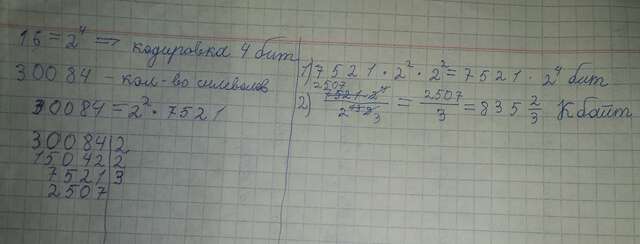 16 = 2⁴ ⇒ кодировка 4 бит
30084 – кол-во символов
30084 = 2² · 7521
30084 | 2
15042 | 2
7521 | 3
2507
1) 7521 · 2² · 2² = 7521 · 2⁴ бит
2507
2) 7521 · 2⁴ / 3 = 2507 / 3 = 835 2/3 Кбайт